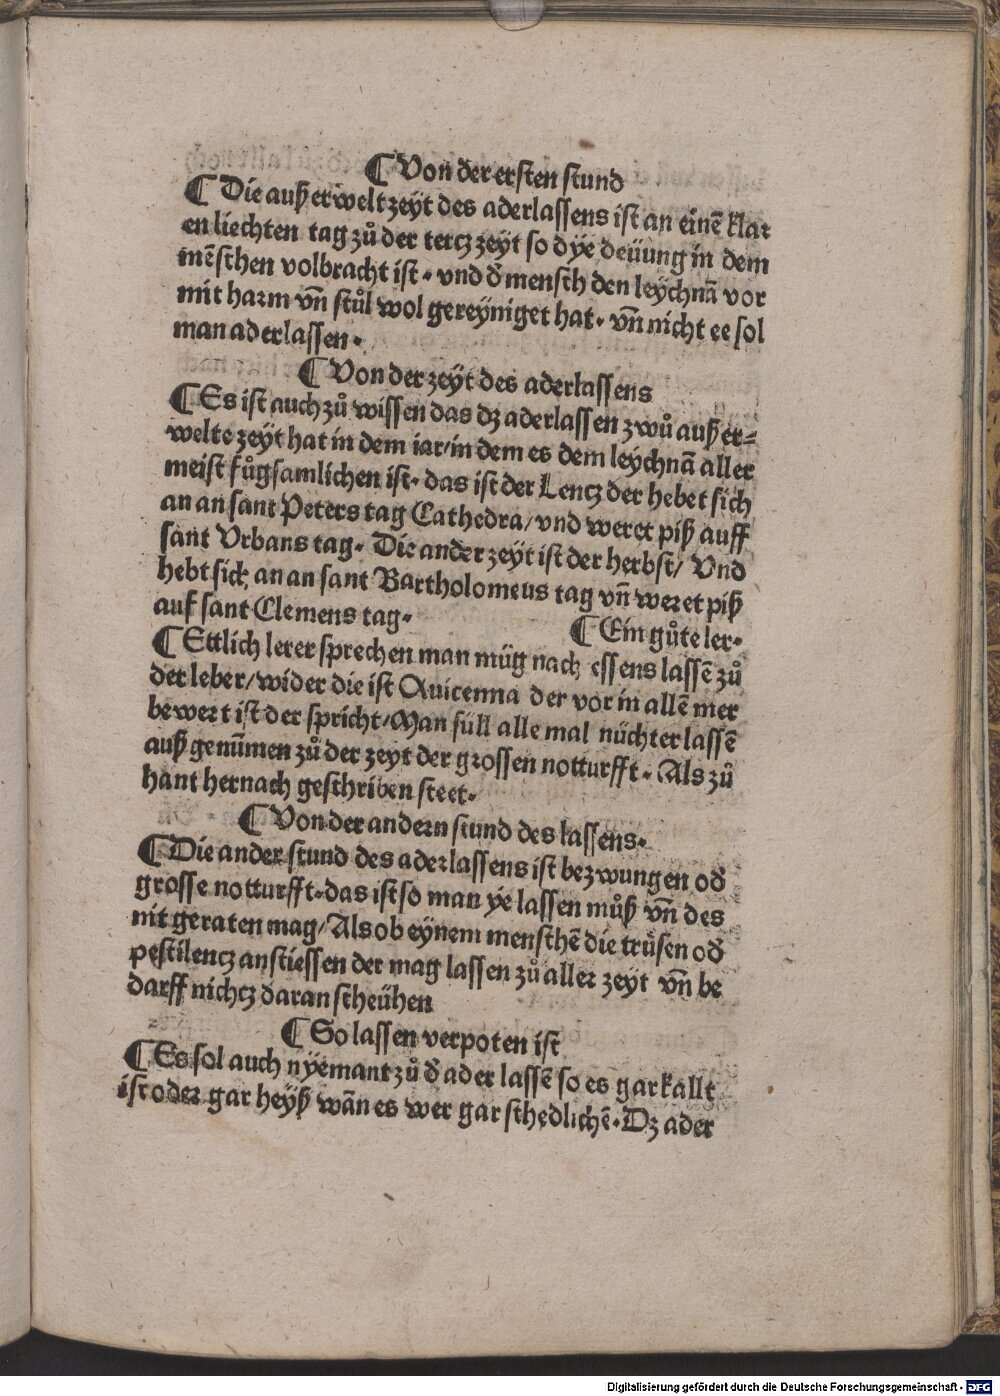 ¶ Von der ersten stund
¶ Die außerwelt zeÿt des aderlassens ist an einē klar
en liechten tag zů der tercz zeÿt so dÿe deüung in dem
mēschen volbracht ist· vnd d̄ mensch den leÿchnā vor
mit harm vn̄ stůl wol gereÿniget hat· vn̄ nicht ee sol
man aderlassen·
¶ Von der zeÿt des aderlassens
¶ Es ist auch zů wissen das dz aderlassen zwů außer⸗
welte zeÿt hat in dem iar/in dem es dem leÿchnā aller
meist fůgsamlichen ist· das ist der Lencz der hebet sich
an an sant Peters tag Cathedra/ vnd weret piß auff
sant Vrbans tag· Die ander zeÿt ist der herbst/ Vnd
hebt sich an an sant Bartholomeus tag vn̄ weret piß
auf sant Clemens tag·   ¶ Ein gůte ler·
¶ Ettlich lerer sprechen man müg nach essens lassē zů
der leber/wider die ist Auicenna der vor in allē mer
bewert ist der spricht/Man süll alle mal nüchter lassē
außgenūmen zů der zeyt der grossen notturfft· Als zů
hant hernach geschriben steet·
¶ Von der andern stund des lassens·
¶ Die ander stund des aderlassens ist bezwungen od̄
grosse notturfft·das ist so man ÿe lassen můß vn̄ des
nit geraten mag/ Als ob eÿnem menschē die trůsen od̄
pestilencz anstiessen der mag lassen zů aller zeyt vn̄ be
darff nichcz daran scheühen
¶ So lassen verpoten ist
¶ Es sol auch nÿemant zů d̄ ader lassē so es gar kallt
ist oder gar heÿß wān es wer gar schedlichē· Dz ader
Digitalisierung gefördert durch die Deutsche Forschungsgemeinschaft - DFG